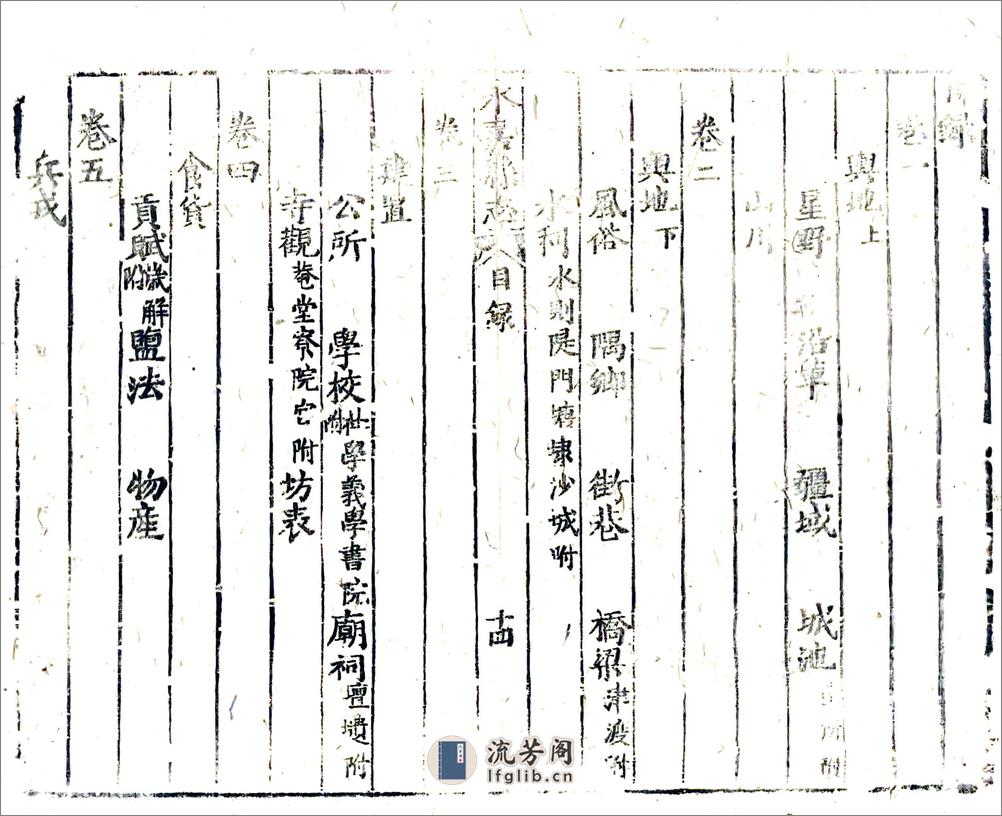 目錄
卷一
輿地上
星野 沿革 疆域 城池
山川
卷二
輿地下
風俗 隅鄉 街巷 橋梁津渡附
水利水則隄門塘埭沙城附
永嘉縣志 目錄 十四
卷三
建置
公所 學校社學義學書院附 廟祠壇壝附
寺觀菴堂寮院宮附 坊表
卷四
食貨
貢賦 解附 鹽法 物產
卷五
兵戎
流芳阁
lfglib.cn